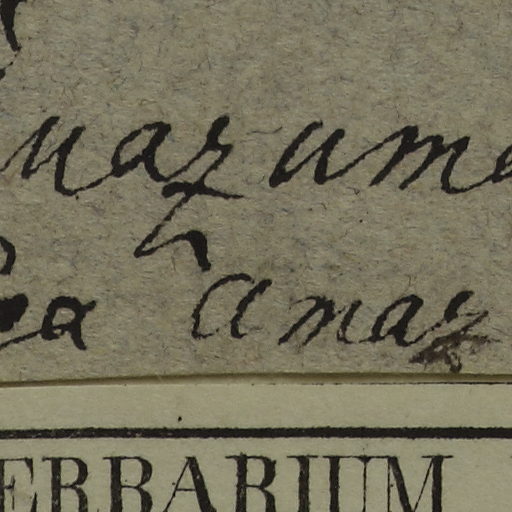 uazuma
ea amar
ERBARIUM